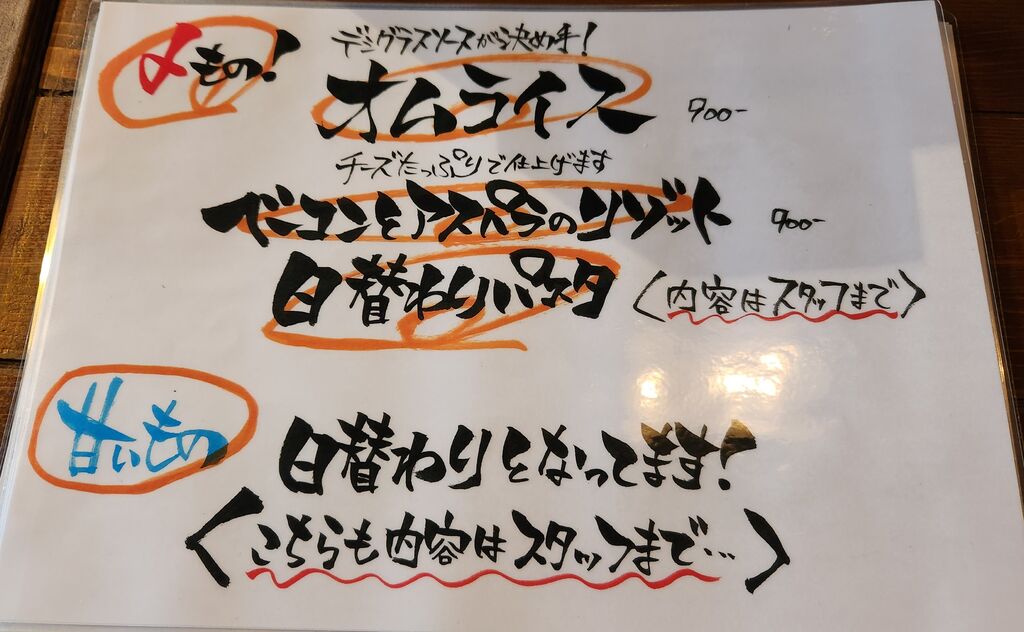 〆もの!
デミグラスソースが決め手!
オムライス 900-
チーズたっぷりで仕上げます
ベーコンとアスパラのリゾット 900-
日替わりパスタ (内容はスタッフまで)
甘いもの
日替わりとなってます!
(こちらも内容はスタッフまで…)